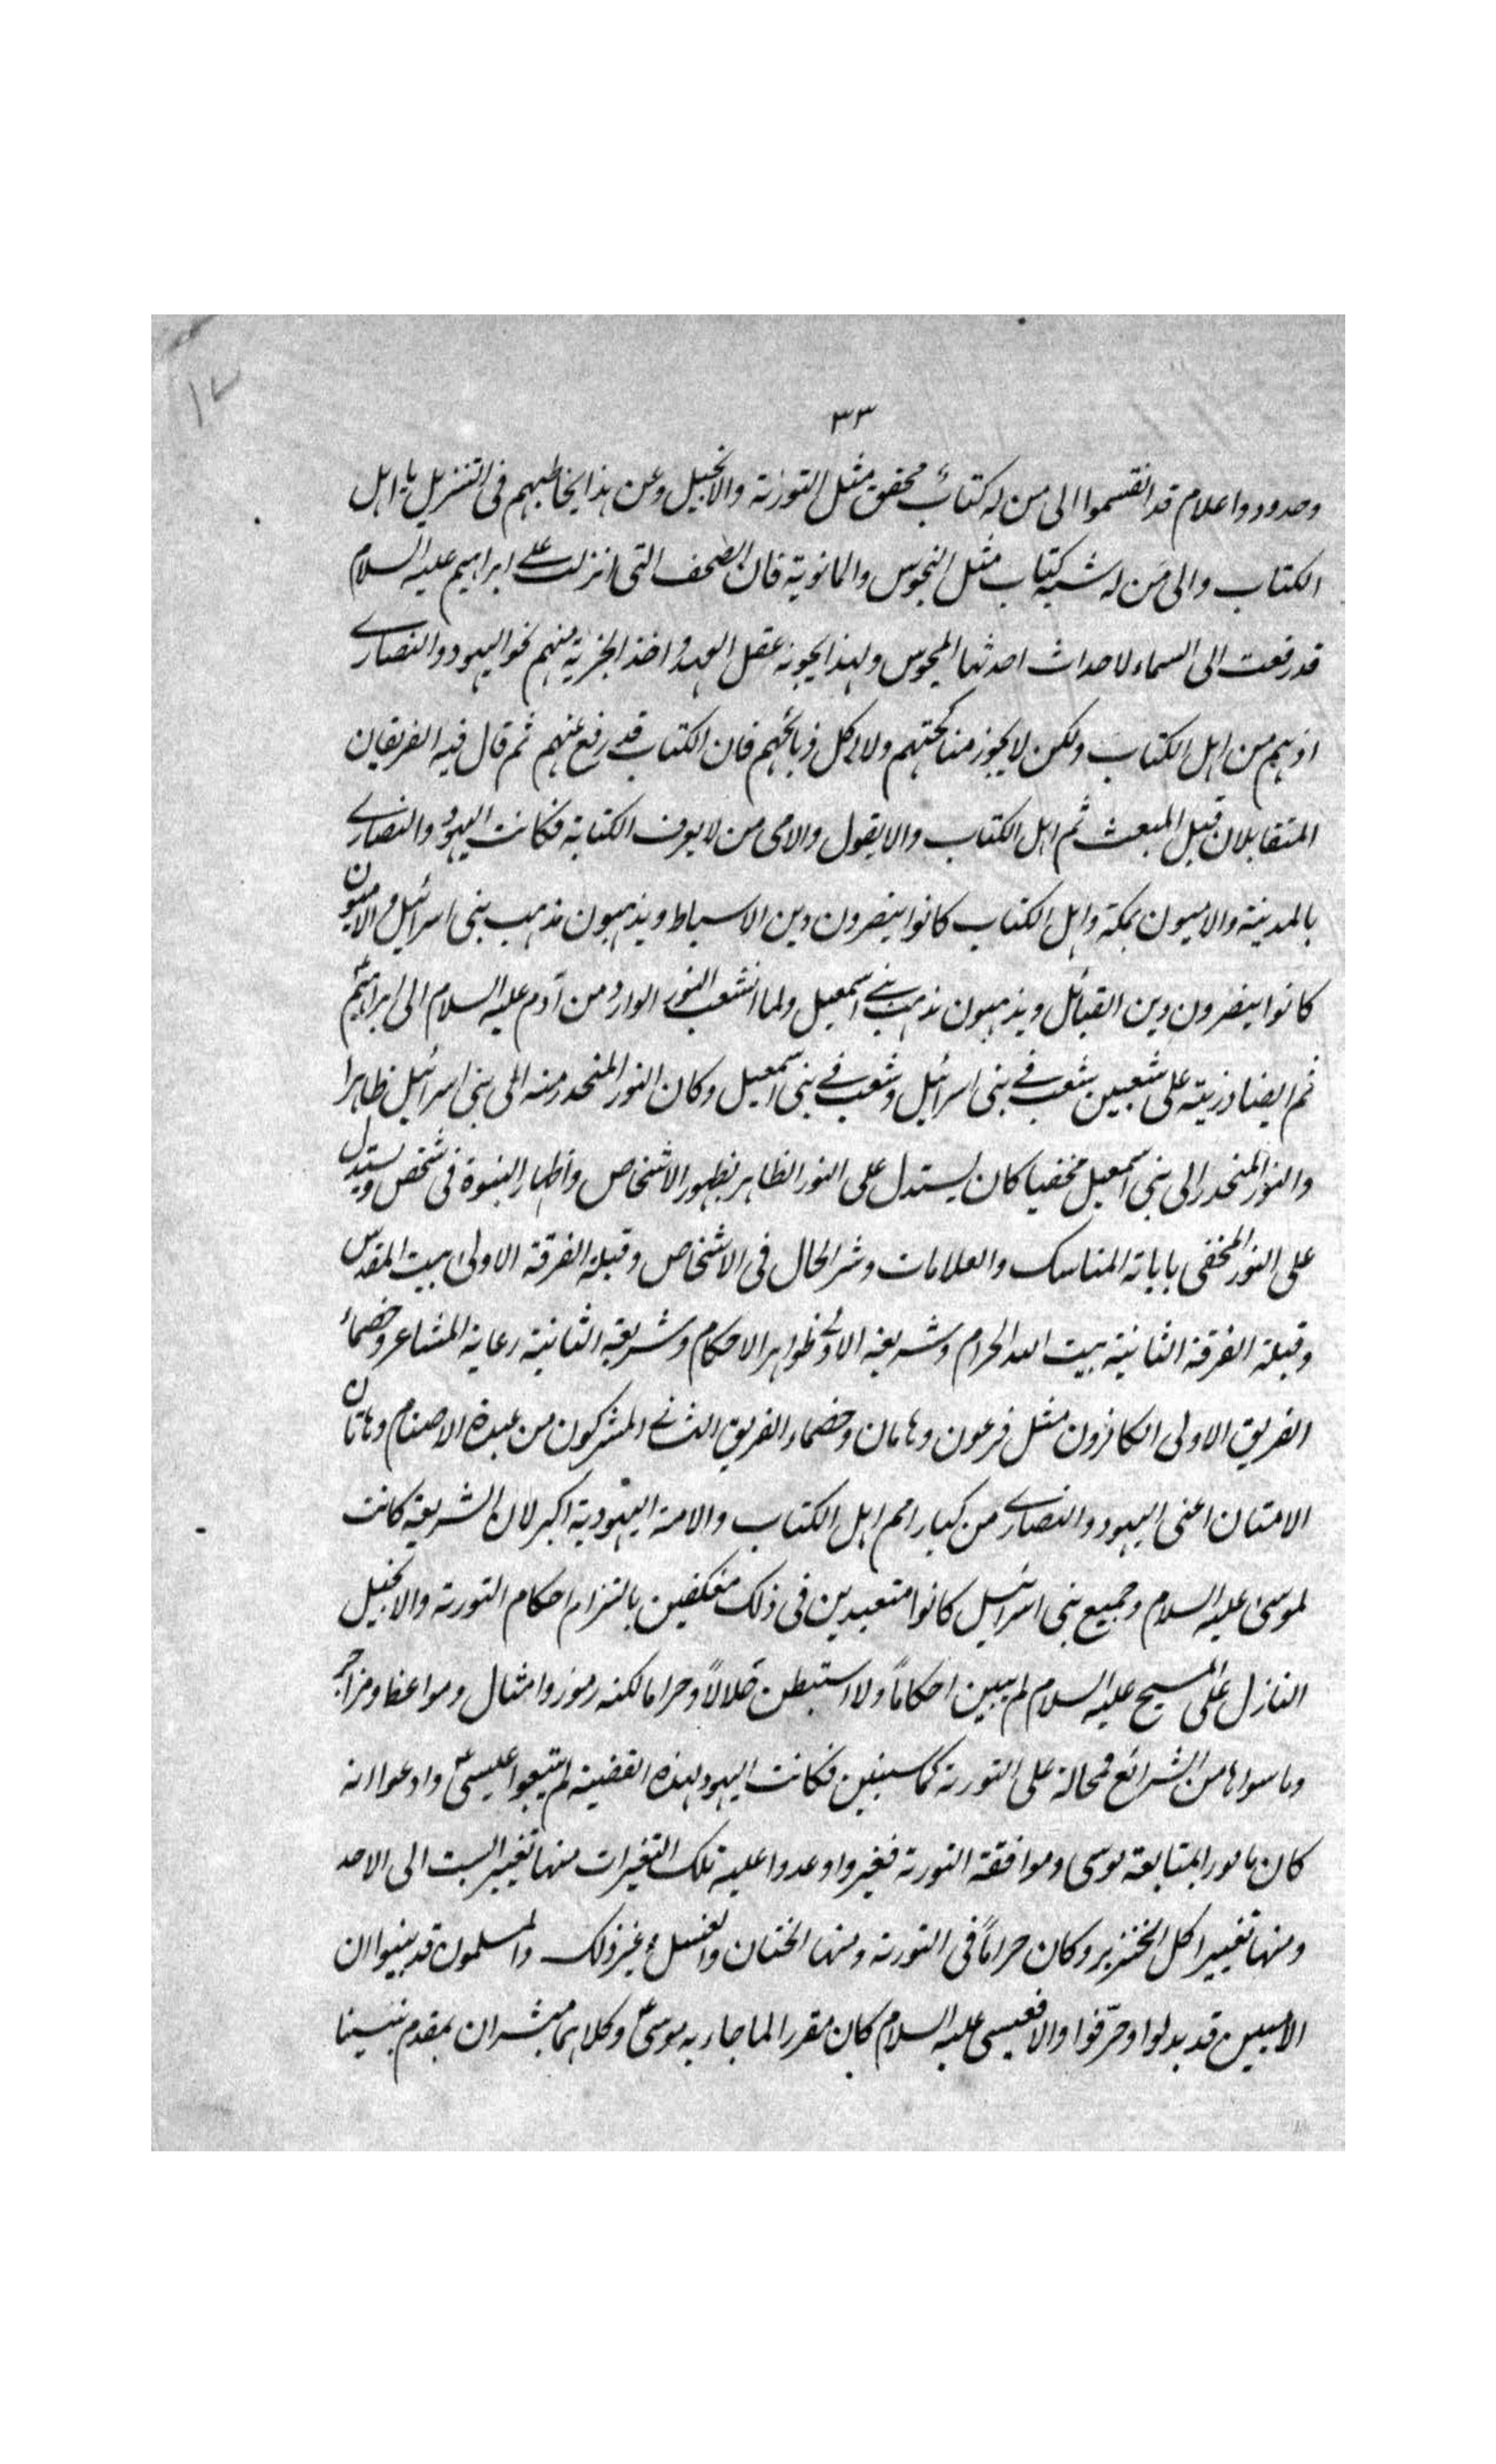 ١٧
٣٣
وحدود واعلام قد انقسموا الى من له كتابٌ محقق مثل التورىة والانجيل وعن هذا يخاطبهم فى التنزيل يا اهل
الكتاب والى من له شبه كتاب مثل المجوس والمانوية فان الصحف التى انزلت على ابراهيم عليه السلام
قد رفعت الى السماء لاحداث احدثها المجوس ولهذا يجوز عقد العهد واخذ الجزية منهم نحو اليهود والنصارى
اذ هم من اهل الكتاب ولكن لا يجوز مناكحتهم ولا اكل ذبائحهم فان الكتاب قد رفع عنهم ثم قال فيه الفريقان
المتقابلان قبل المبعث ثم اهل الكتاب والا يقول والامى من لا يعرف الكتابة فكانت اليهود والنصارى
بالمدينة والاميون بمكة واهل الكتاب كانوا ينصرون دين الاسباط ويذهبون مذهب بنى اسرائيل والاميون
كانوا ينصرون دين القبائل ويذهبون مذهب بنى اسمعيل ولما انشعب النور الوارد من آدم عليه السلام الى ابراهيم
ثم ايضا ذريته على شعبين شعب فى بنى اسرائيل وشعب فى بنى اسمعيل وكان النور المنحدر منه الى بنى اسرائيل ظاهرا
والنور المنحدر الى بنى اسمعيل مخفيا كان يستدل على النور الظاهر بظهور الاشخاص واظهار النبوة فى شخص ويستدل
على النور المخفى باباتة المناسك والعلامات وشر الحال فى الاشخاص وقبلة الفرقة الاولى بيت المقدس
وقبلة الفرقة الثانية بيت الله الحرام وشريعة الاولى ظواهر الاحكام وشريعة الثانية رعاية المشاعر وخصماء
الفريق الاولى الكافرون مثل فرعون وهامان وخصماء الفريق الثانى المشركون من عبدة الاصنام وهاتان
الامتان اعنى اليهود والنصارى من كبار امم اهل الكتاب والامة اليهودية اكبر لان الشريعة كانت
لموسى عليه السلام وجميع بنى اسرائيل كانوا متعبدين فى ذلك مكلفين بالتزام احكام التورىة والانجيل
النازل على المسيح عليه السلام لم يبين احكاماً ولا استبطن حلالاً وحراما لكنه رموز وامثال ومواعظ ومزاجر
وما سواها من الشرائع فمحالة على التورىة كما سنبين فكانت اليهود لهذه القضية لم يتبعوا عيسى وادعوا انه
كان مامورا بمتابعة موسى وموافقة التورىة فغيروا وعدوا عليه تلك التغيرات منها تغيير السبت الى الاحد
ومنها تغيير اكل الخنزير وكان حراماً فى التورىة ومنها الختان والغسل وغير ذلك والمسلمون قد بينوا ان
الاميين قد بدلوا وحرّفوا والا فعيسى عليه السلام كان مقررا لما جاء به موسى وكلاهما مبشران بمقدم نبينا